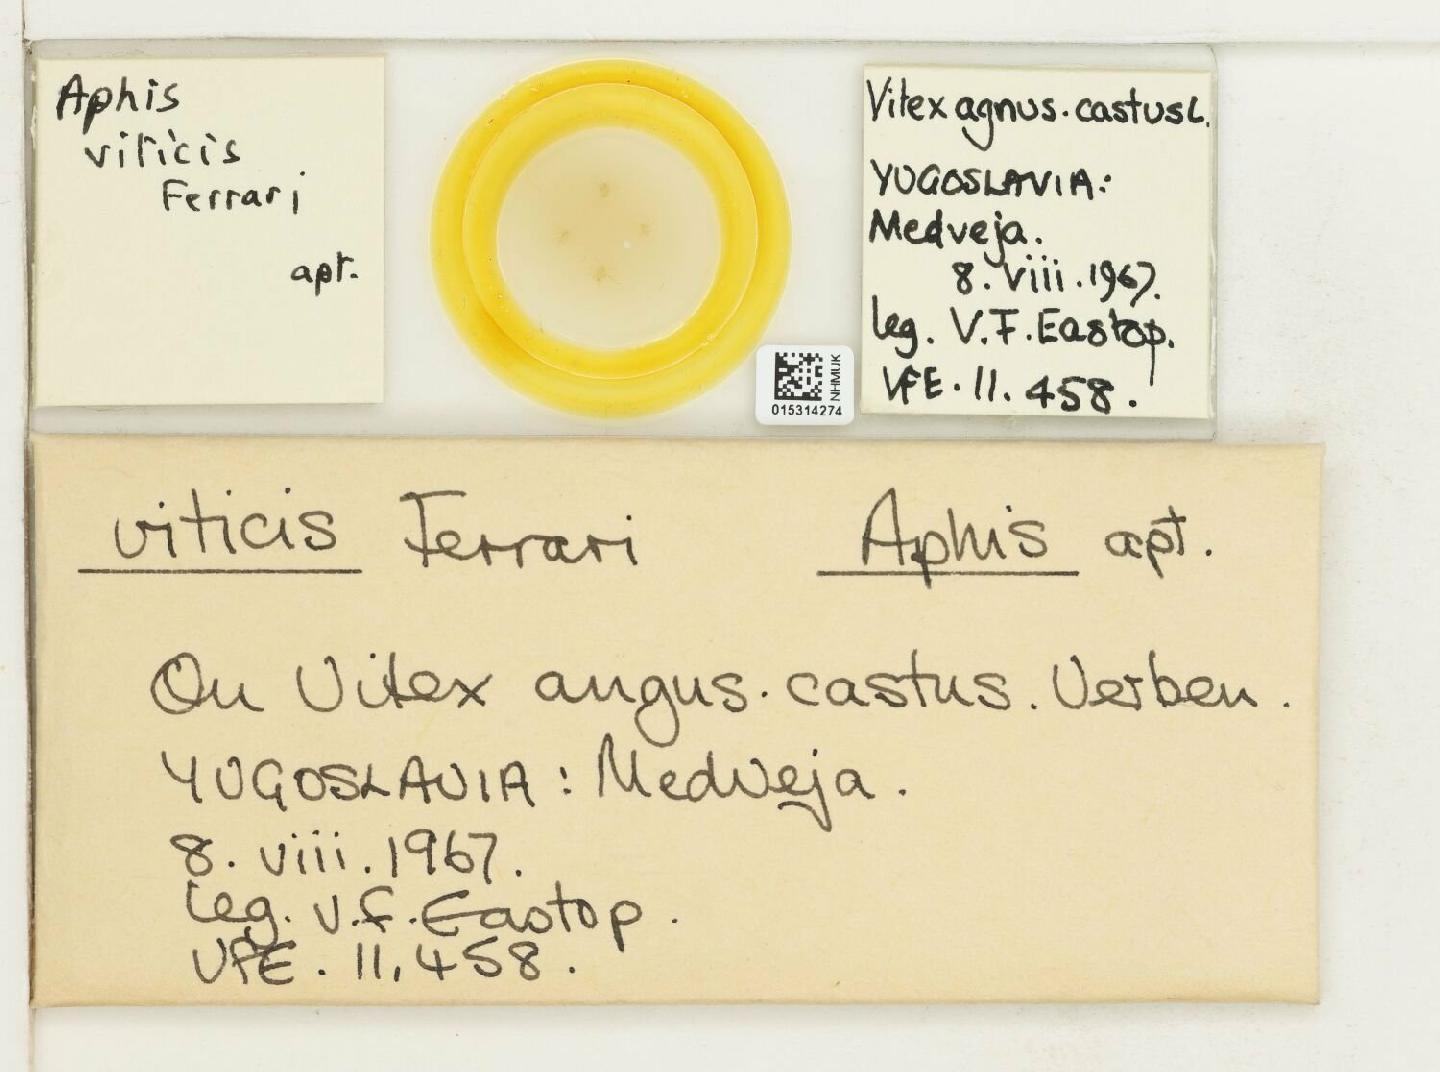 Aphis
viticis
Ferrari
apt.
Vitex agnus. castus L.
YUGOSLAVIA:
Medveja.
8. viii. 1967.
leg. V.F. Eastop.
VFE. 11. 458.
NHMUK
015314274
viticis Ferrari Aphis apt.
On Vitex angus. castus. Verben.
YUGOSLAVIA: Medveja.
8. viii. 1967.
leg. V.F. Eastop.
VFE. 11. 458.